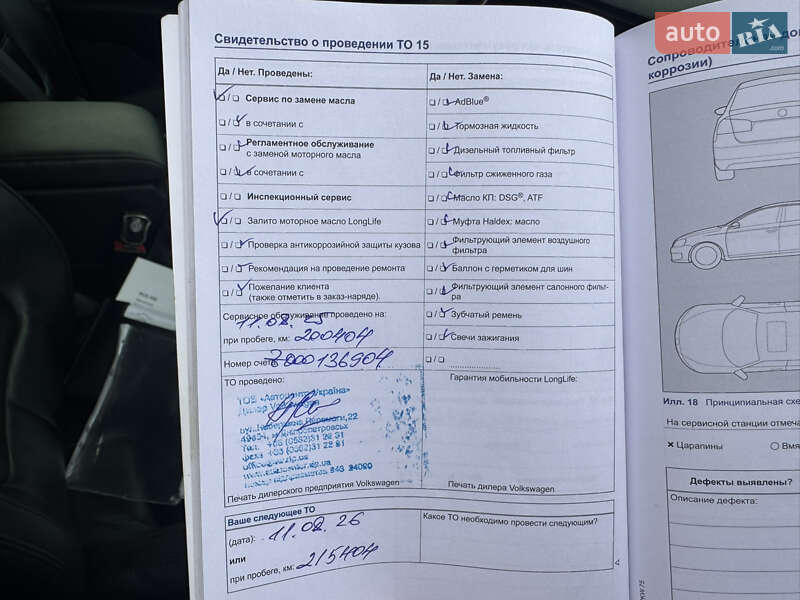 Свидетельство о проведении ТО 15
Да / Нет. Проведены:
Сервис по замене масла
в сочетании с
Регламентное обслуживание
с заменой моторного масла
в сочетании с
Инспекционный сервис
Залито моторное масло LongLife
Проверка антикоррозийной защиты кузова
Рекомендация на проведение ремонта
Пожелание клиента
(также отметить в заказ-наряде).
Да / Нет. Замена:
AdBlue®
Тормозная жидкость
Дизельный топливный фильтр
Фильтр сжиженного газа
Масло КП: DSG®, ATF
Муфта Haldex: масло
Фильтрующий элемент воздушного
фильтра
Баллон с герметиком для шин
Фильтрующий элемент салонного филь-
ра
Зубчатый ремень
Свечи зажигания
Сервисное обслуживание проведено на:
11.08.25
при пробеге, км: 200404
Номер счёта
2000136904
ТО проведено:
ТОВ «Автоцентр-Україна»
Дилер
вул. Набережна Перемоги,22
Печать дилерского предприятия Volkswagen
Гарантия мобильности LongLife:
Печать дилера Volkswagen
Ваше следующее ТО
(дата): 11.08.26
или
при пробеге, км: 215404
Какое ТО необходимо провести следующим?
auto RIA
.com
Сопроводител
коррозии)
Илл. 18 Принципиальная схе
На сервисной станции отмеча
× Царапины
Вмя
Дефекты выявлены?
Описание дефекта: